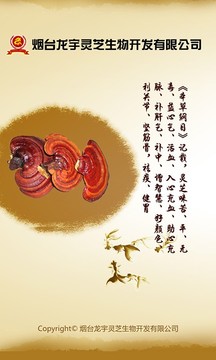 烟台龙宇灵芝生物开发有限公司
《本草纲目》记载，灵芝味苦、平、无
毒，益心气，活血，入心充血，助心充
脉，补肝气，补中，增智慧，好颜色，
利关节，坚筋骨，祛痰，健胃
Copyright© 烟台龙宇灵芝生物开发有限公司